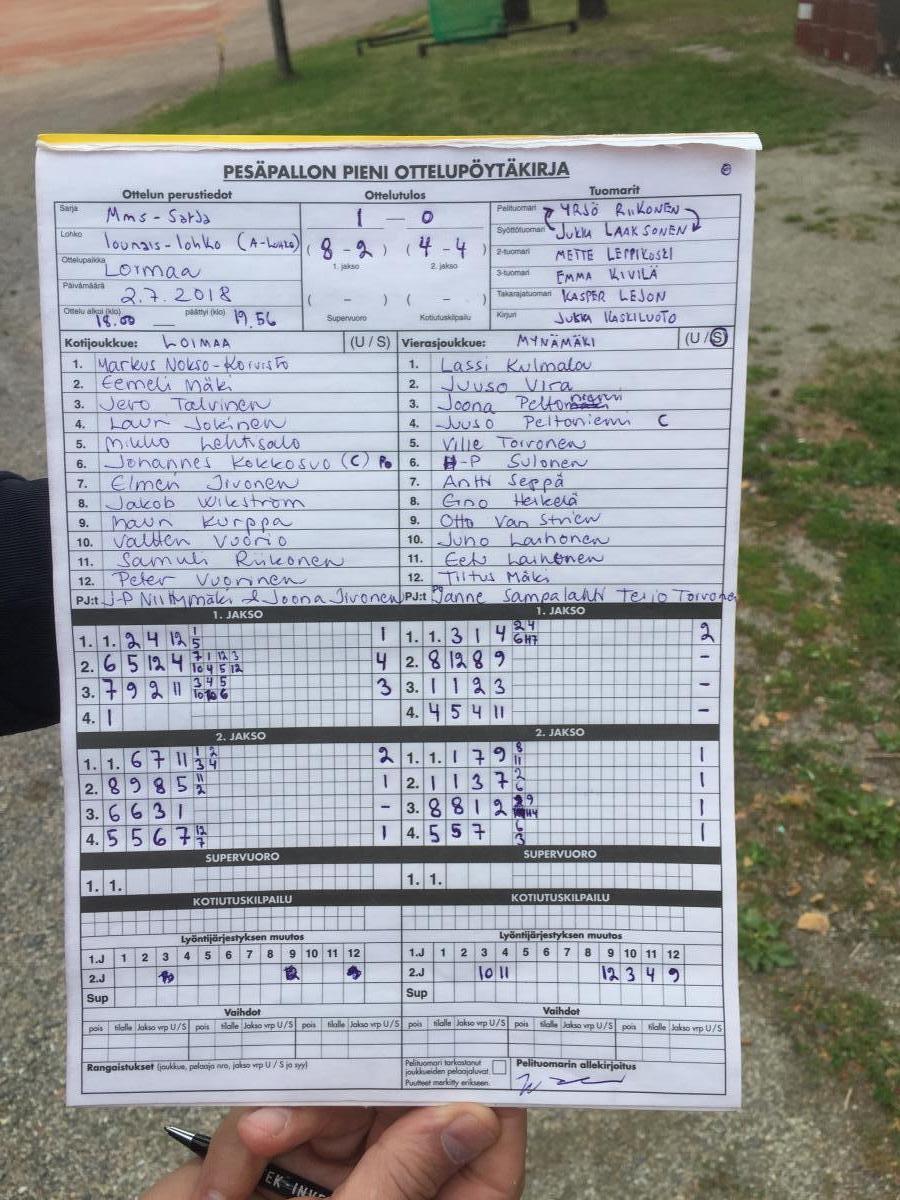 PESÄPALLON PIENI OTTELUPÖYTÄKIRJA
Ottelun perustiedot
Sarja Mms-Sarja
Lohko lounais-lohko (A-Lohko)
Ottelupaikka Loimaa
Päivämäärä 2.7.2018
Ottelu alkoi (klo) 18.00 päättyi (klo) 19.56
Ottelutulos
1 - 0
(8 - 2) (4 - 4)
1. jakso 2. jakso
( - ) ( - )
Supervuoro Kotiutuskilpailu
Tuomarit
Pelituomari YRJÖ RIIKONEN
Syöttötuomari JUKKA LAAKSONEN
2-tuomari METTE LEPPIKOSKI
3-tuomari EMMA KIVILÄ
Takarajatuomari KASPER LEJON
Kirjuri JUKKA KASKILUOTO
Kotijoukkue: LOIMAA (U / S)
1. Markus Nokso-Koivisto
2. Eemeli Mäki
3. Jero Talvinen
4. Lauri Jokinen
5. Mikko Lehtisalo
6. Johannes Kokkosuo (C)
7. Elmeri Jivonen
8. Jakob Wikström
9. Mauri Kurppa
10. Valtteri Vuorio
11. Samuli Riikonen
12. Peter Vuorinen
PJ:t J-P Niittymäki & Joona Jivonen
Vierasjoukkue: MYNÄMÄKI (U / S)
1. Lassi Kulmala
2. Juuso Vira
3. Joona Peltoniemi
4. Juuso Peltoniemi C
5. Ville Toivonen
6. H-P Sulonen
7. Antti Seppä
8. Eino Heikelä
9. Otto Van Strien
10. Juho Laihonen
11. Eetu Laihonen
12. Tiitus Mäki
PJ:t Janne Sampalahti Terjo Toivonen
1. JAKSO
1. 1. 2 4 12 1 5 1
2. 6 5 12 4 7 1 12 3 10 4 5 12 4
3. 7 9 2 11 3 4 5 10 10 6 3
4. 1
1. JAKSO
1. 1. 3 1 4 2 4 6 H7 2
2. 8 12 8 9 -
3. 1 1 2 3 -
4. 4 5 4 11 -
2. JAKSO
1. 1. 6 7 11 1 2 3 4 2
2. 8 9 8 5 11 2 1
3. 6 6 3 1 -
4. 5 5 6 7 12 7 1
2. JAKSO
1. 1. 1 7 9 8 11 1
2. 1 1 3 7 2 6 1
3. 8 8 1 2 9 H4 1
4. 5 5 7 6 3 1
SUPERVUORO
1. 1.
SUPERVUORO
1. 1.
KOTIUTUSKILPAILU
KOTIUTUSKILPAILU
Lyöntijärjestyksen muutos
1.J 1 2 3 4 5 6 7 8 9 10 11 12
2.J
Sup
Lyöntijärjestyksen muutos
1.J 1 2 3 4 5 6 7 8 9 10 11 12
2.J 10 11 12 3 4 9
Sup
Vaihdot
pois tilalle Jakso vrp U / S pois tilalle Jakso vrp U / S pois tilalle Jakso vrp U / S
Vaihdot
pois tilalle Jakso vrp U / S pois tilalle Jakso vrp U / S pois tilalle Jakso vrp U / S
Rangaistukset (joukkue, pelaaja nro, jakso vrp U / S ja syy)
Pelituomari tarkastanut
joukkueiden pelaajaluvat.
Puutteet merkitty erikseen.
Pelituomarin allekirjoitus
EK-INV